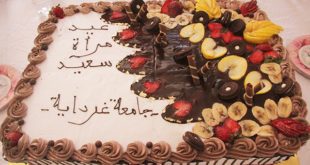 عيد
مرأة
سعيد
جامعة غرداية -